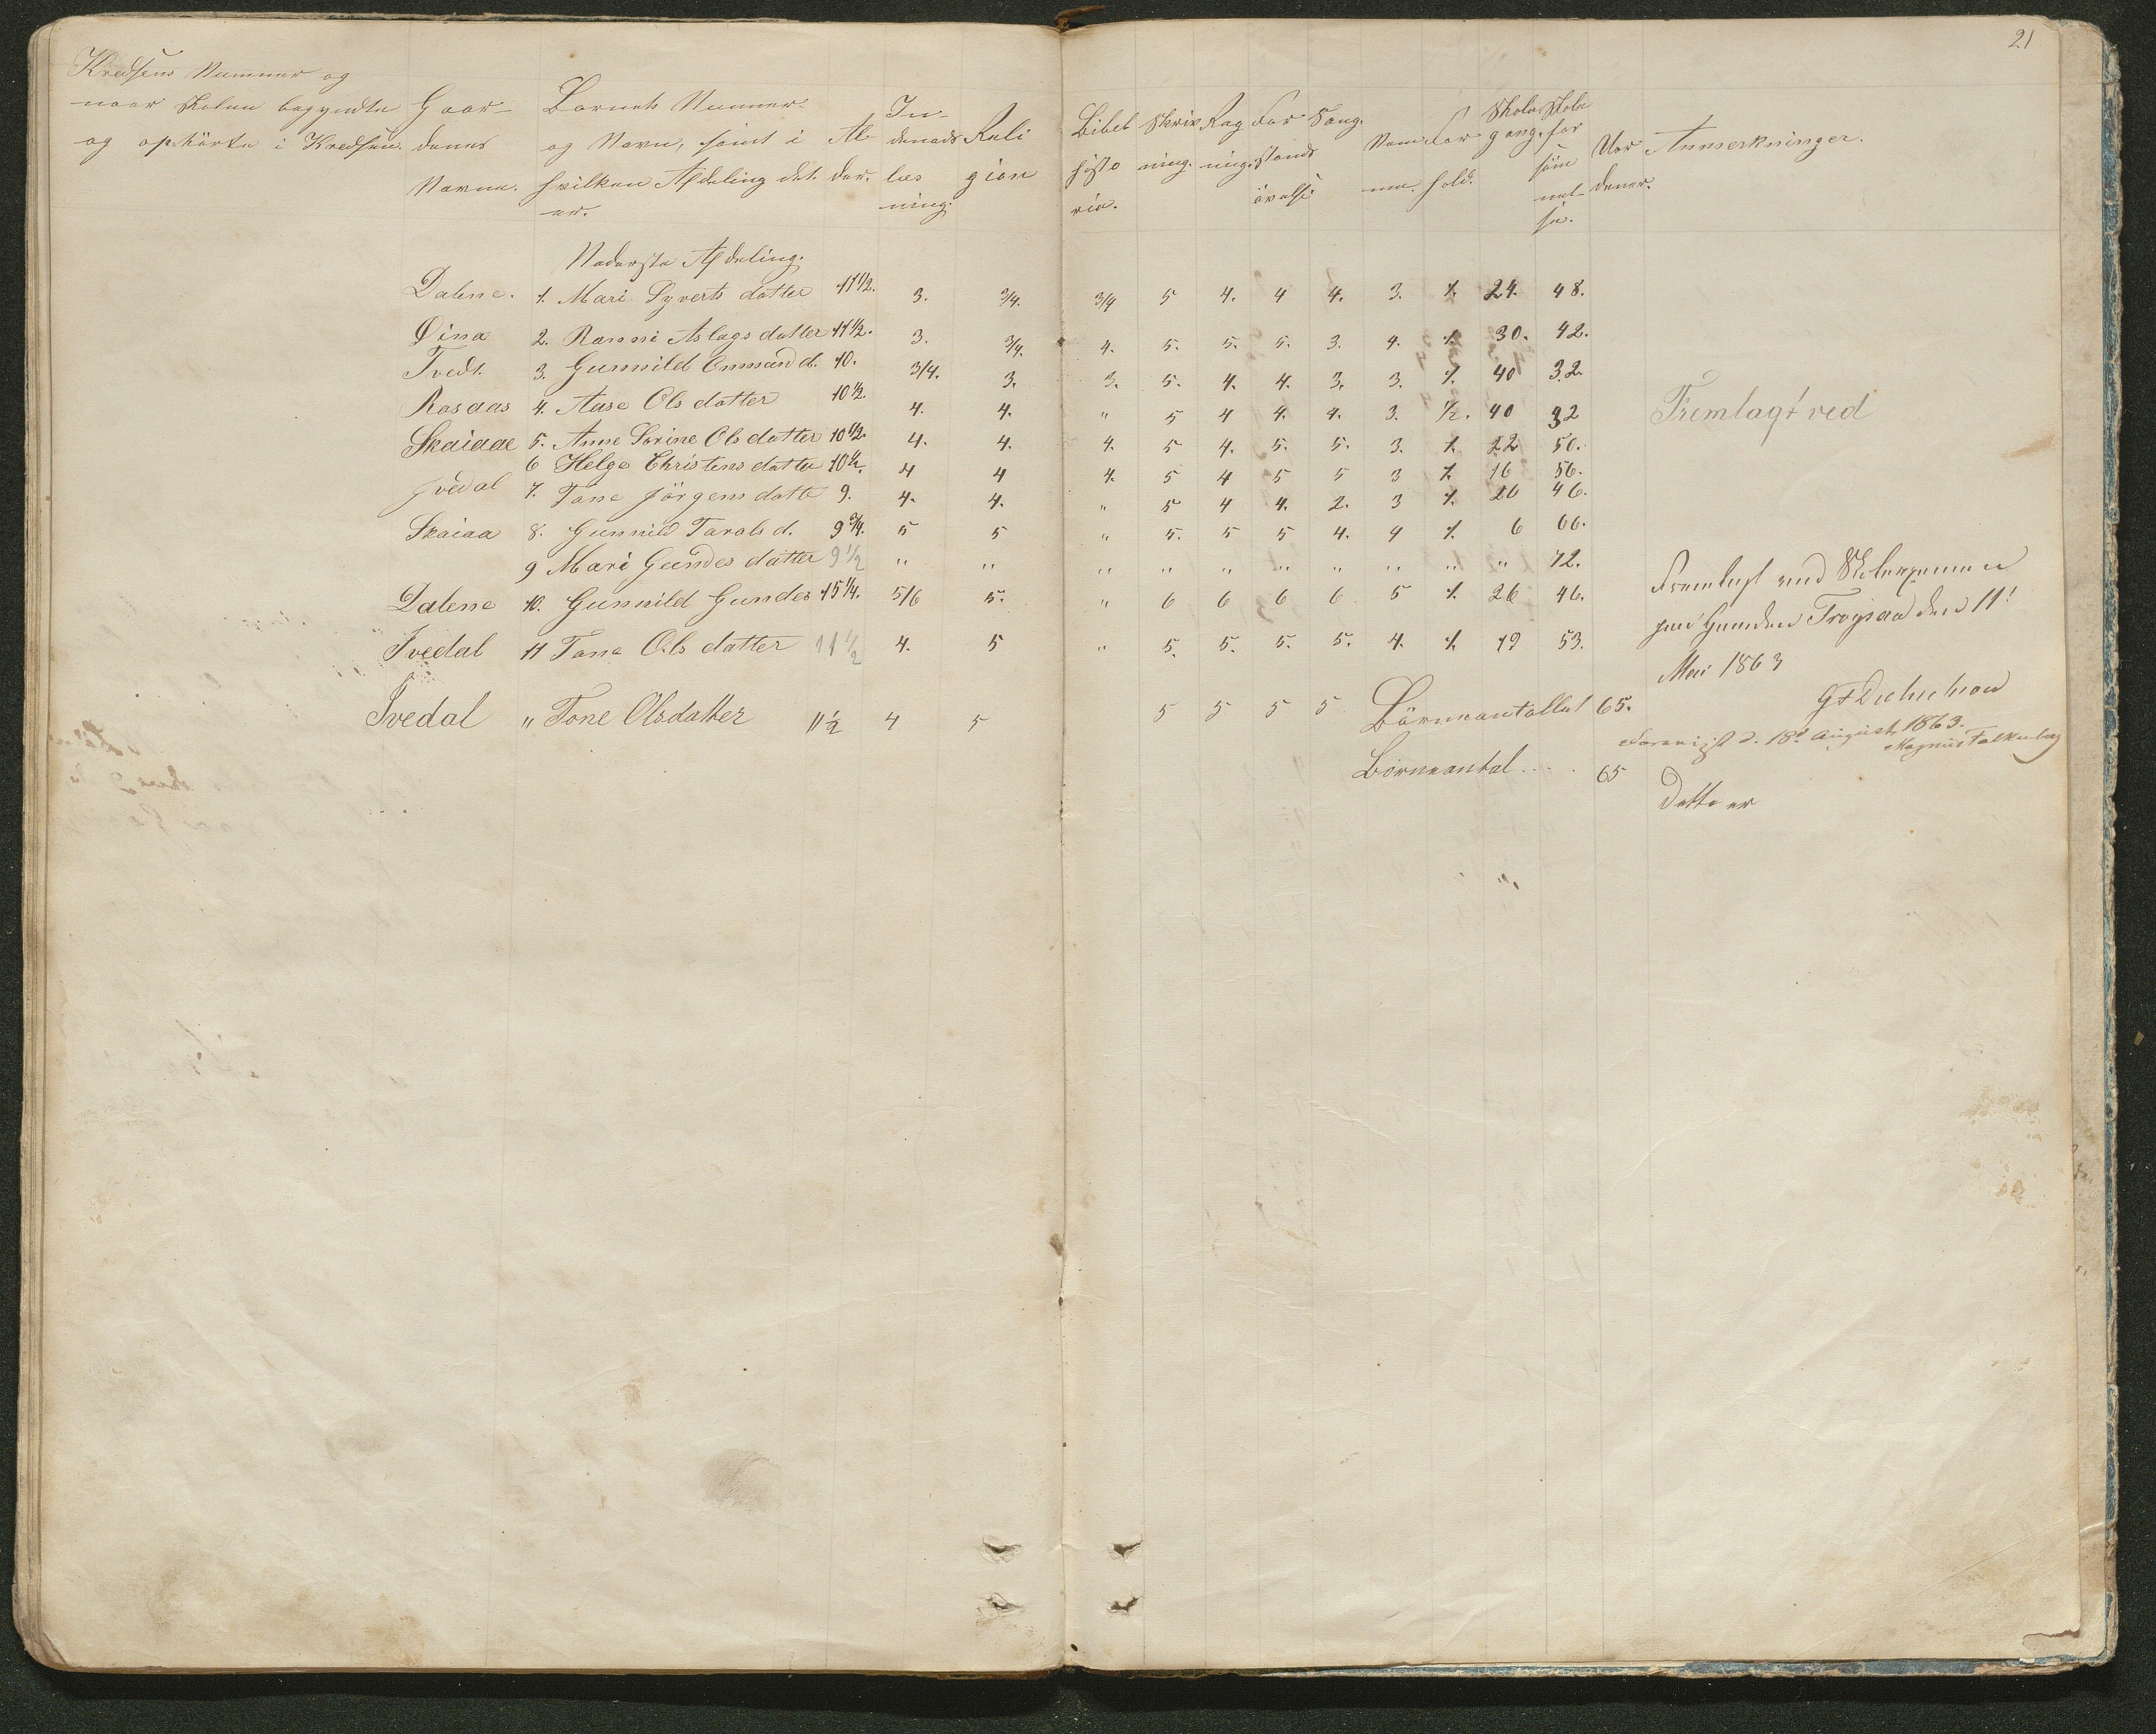 21
Kredsens Nummer og naar Skolen begyndte og ophörte i Kredsen.
Gaardenes Navne.
Barnets Nummer og Navn, samt i hvilken Afdeling det er.
Alder.
Indenadslæsning.
Religion
Bibelhistorie.
Skrivning.
Regning.
Forstandsövelse
Sang.
Skolegang.
Skoleforsömmelse.
Anmerkninger.
Nederste Afdeling.
Dalene. 1. Mari Syverts datter 11 1/2. 3. 3/4. 3/4 5 4. 4 4. 3. 1. 24. 48.
Öina 2. Ranni Aslags datter 11 1/2. 3. 3/4. 4. 5. 5. 5. 3. 4. 1. 30. 42.
Tvedt. 3. Gunnild Enmund d. 10. 3/4. 3. 3. 5. 4. 4. 3. 3. 1. 40 32.
Rosaas 4. Aase Ols datter 10 1/2. 4. 4. " 5 4 4. 4. 3. 1/2. 40 32
Skaiaae 5. Anne Sorine Ols datter 10 1/2. 4. 4. 4. 5 4. 5. 5. 3. 1. 22 50.
6 Helge Christens datter 10 1/2. 4 4 4. 5 4 5 5 3 1. 16 56.
Ivedal 7. Tone Jörgens datte 9. 4. 4. " 5 4 4. 2. 3 1. 26 46.
Skaiaa 8. Gunnild Tarals d. 9 3/4. 5 5 " 5. 5 5 4. 4 1. 6 66.
9 Mari Gundes datter 9 1/2 " " " " " " " " " " 72.
Dalene 10. Gunnild Gundes 15 1/4. 5/6 5. " 6 6 6 6 5 1. 26 46.
Ivedal 11 Tone Ols datter 11 1/2 4. 5 " 5. 5. 5. 5. 4. 1. 19 53.
Ivedal " Tone Olsdatter 11 1/2 4 5 5 5 5 5
Börneantallet 65.
Börneantal.... 65
Fremlagt ved
Fremlagt ved Skolexamen
paa Gaarden Trøgsaa den 11!
Mai 1863
Foreviist d. 18d August 1863.
Magnus Falkenberg
Dette er